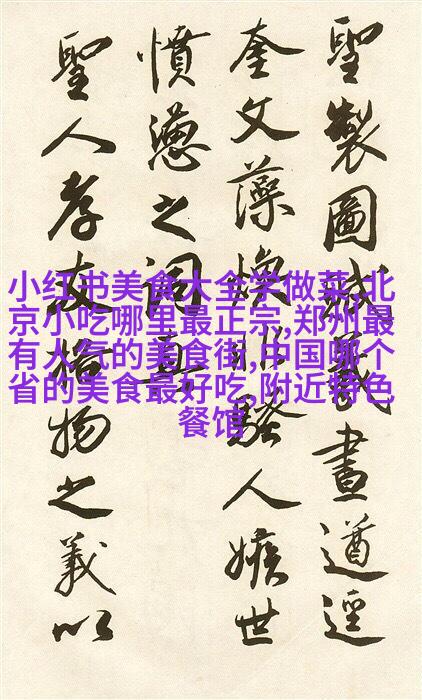 小红书美食大全学做菜,北
京小吃哪里最正宗,郑州最
有人气的美食街,中国哪个
省的美食最好吃,附近特色
餐馆
聖製圖義畫遒逕
奎文藻煥騷人嫉世
憤懣之詞
聖人孝友物之義以